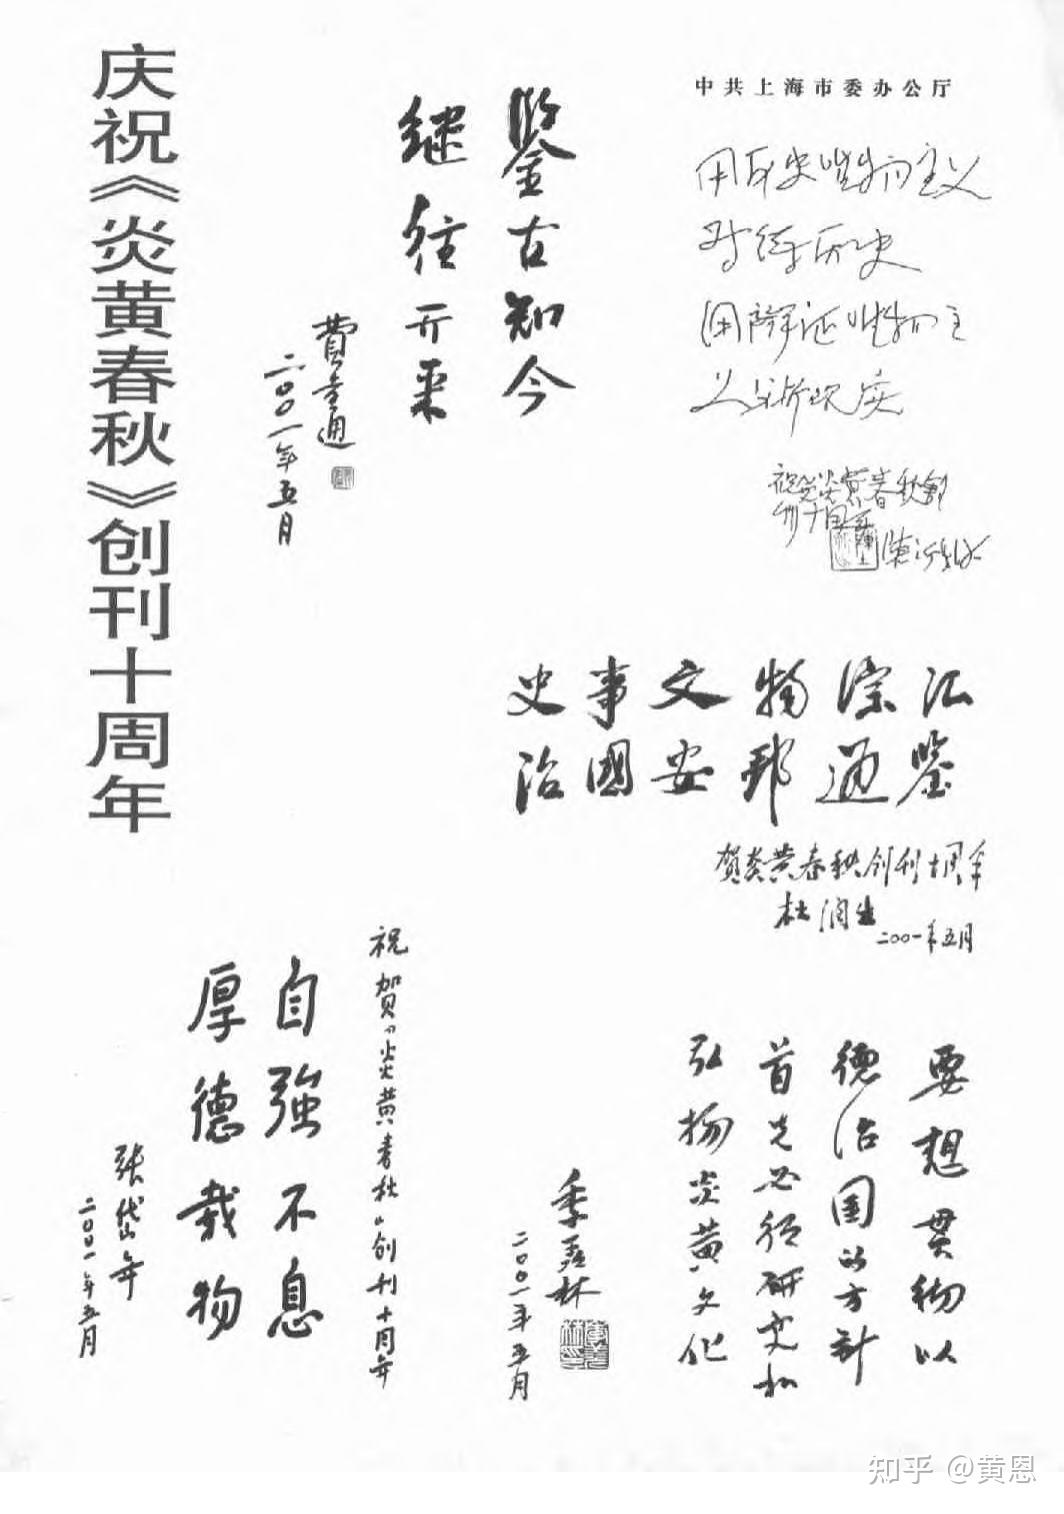 庆祝《炎黄春秋》创刊十周年
鉴古知今
继往开来
費孝通
二〇〇一年五月
中共上海市委办公厅
用历史唯物主义
对待历史
用辩证唯物主
义分析现实
祝贺炎黄春秋創
刊十周年
陈沂
史事文物综汇
治國安邦通鉴
贺炎黄春秋创刊十周年
杜润生
二〇〇一年五月
祝贺《炎黄春秋》创刊十周年
自強不息
厚德載物
张岱年
二〇〇一年五月
要想贯彻以
德治国的方針
首先必须研究和
弘揚炎黄文化
季羡林
二〇〇一年五月
知乎 @黄恩